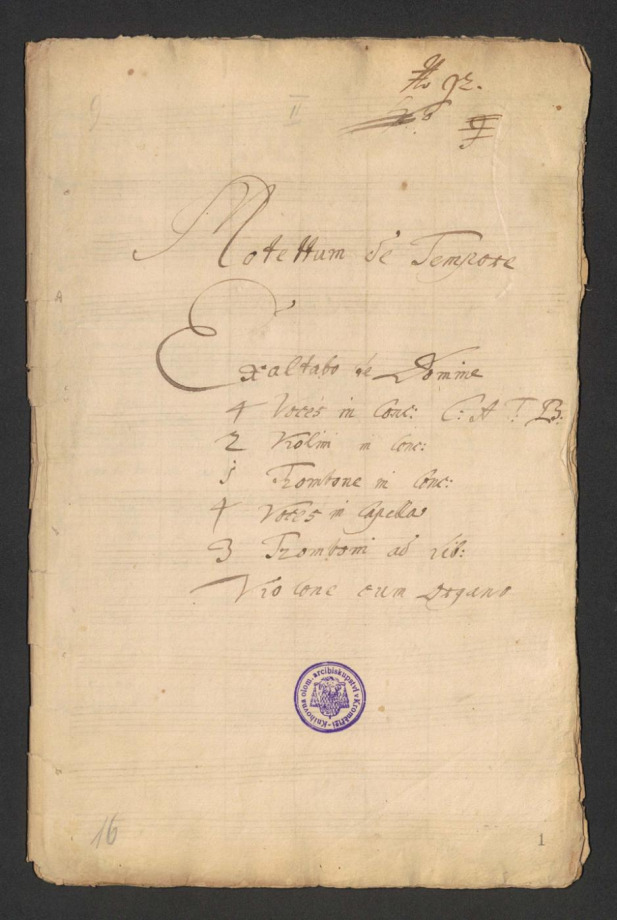 No 92.
8 9
9 II
Motettum de Tempore
Exaltabo te Domine
4 Voces in Conc: C: A T: B:
2 Violini in Conc:
1 Trombone in Conc:
4 Voces in Capella
3 Tromboni ad lib:
Violone cum Organo
Knihovna olom. arcibiskupství v Kroměříži
16
1